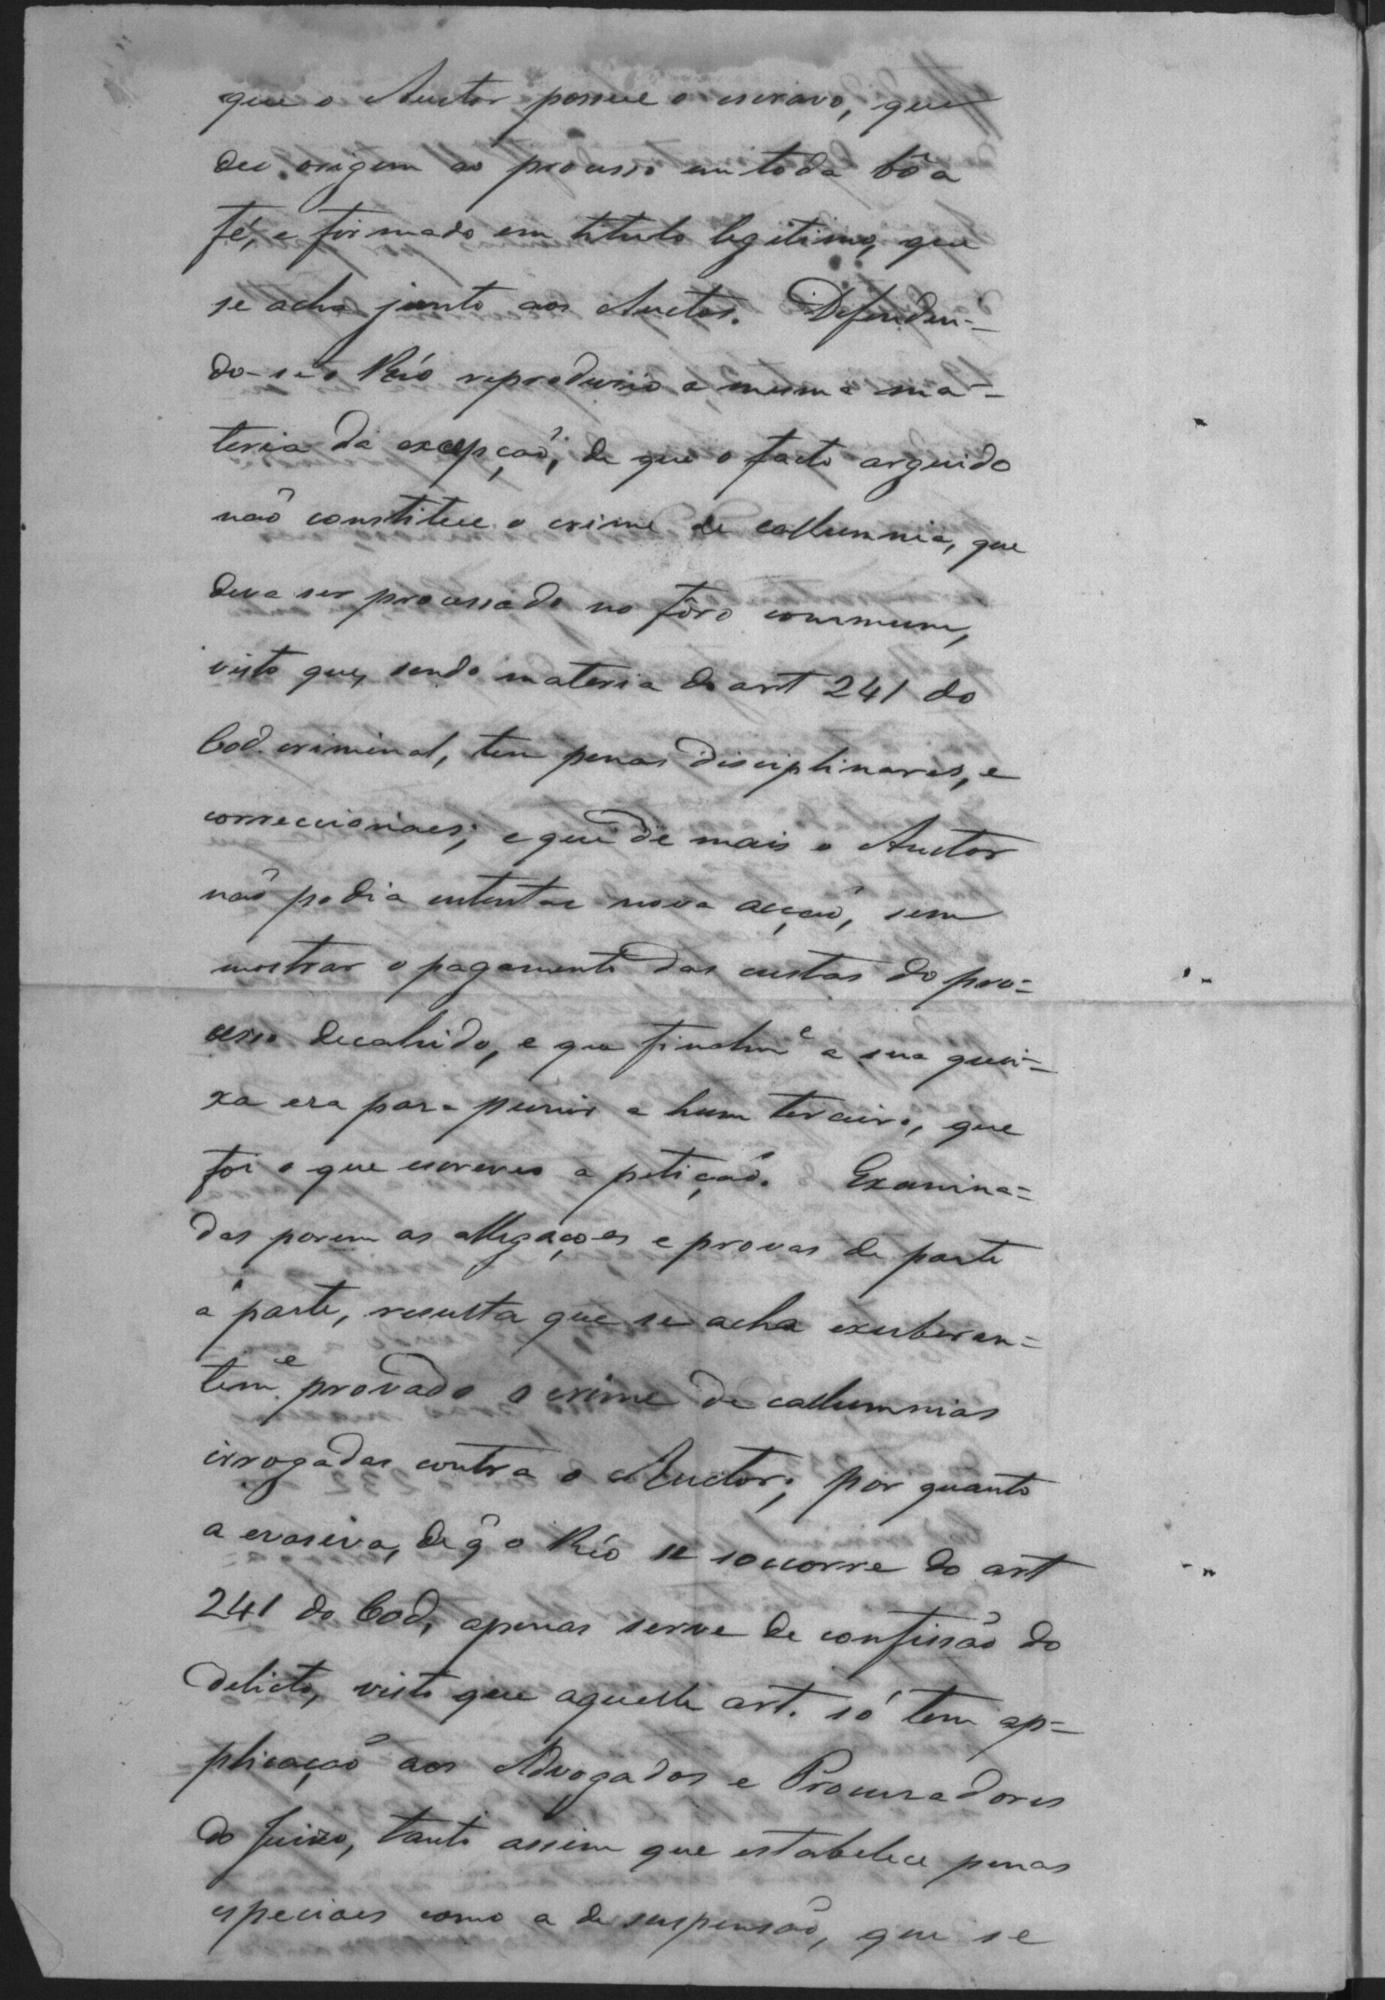 que o Auctor possue o escravo, que
deu origem ao processo em toda bôa
fé, e firmado em titulo legitimo, que
se acha junto aos Auctos. Defenden-
do-se o Réo reprodusio a mesma ma-
teria da excepçaõ, de que o facto arguido
naõ constitue o crime de callumnia, que
deva ser processado no fôro commum,
visto que, sendo materia do art 241 do
Cod. criminal, tem penas disciplinares, e
correccionaes; e que de mais o Auctor
naõ podia intentar nova acçaõ, sem
mostrar o pagamento das custas do pro-
cesso decahido, e que finalm.e a sua quei-
xa era para punir a hum terceiro, que
foi o que escreveo a petiçaõ. Examina-
das porem as allegações e provas de parte
á parte, resulta que se acha exuberan-
tem.e provado o crime de callumnias
irrogadas contra o Auctor; por quanto
a evasiva, de q̂ o Réo se soccorre do art
241 do Cod, apenas serve de confissão do
delicto, visto que aquelle art. só tem ap-
plicaçaõ aos Advogados e Procuradores
do Juizo, tanto assim que estabelece penas
especiaes como a de suspensão, que se